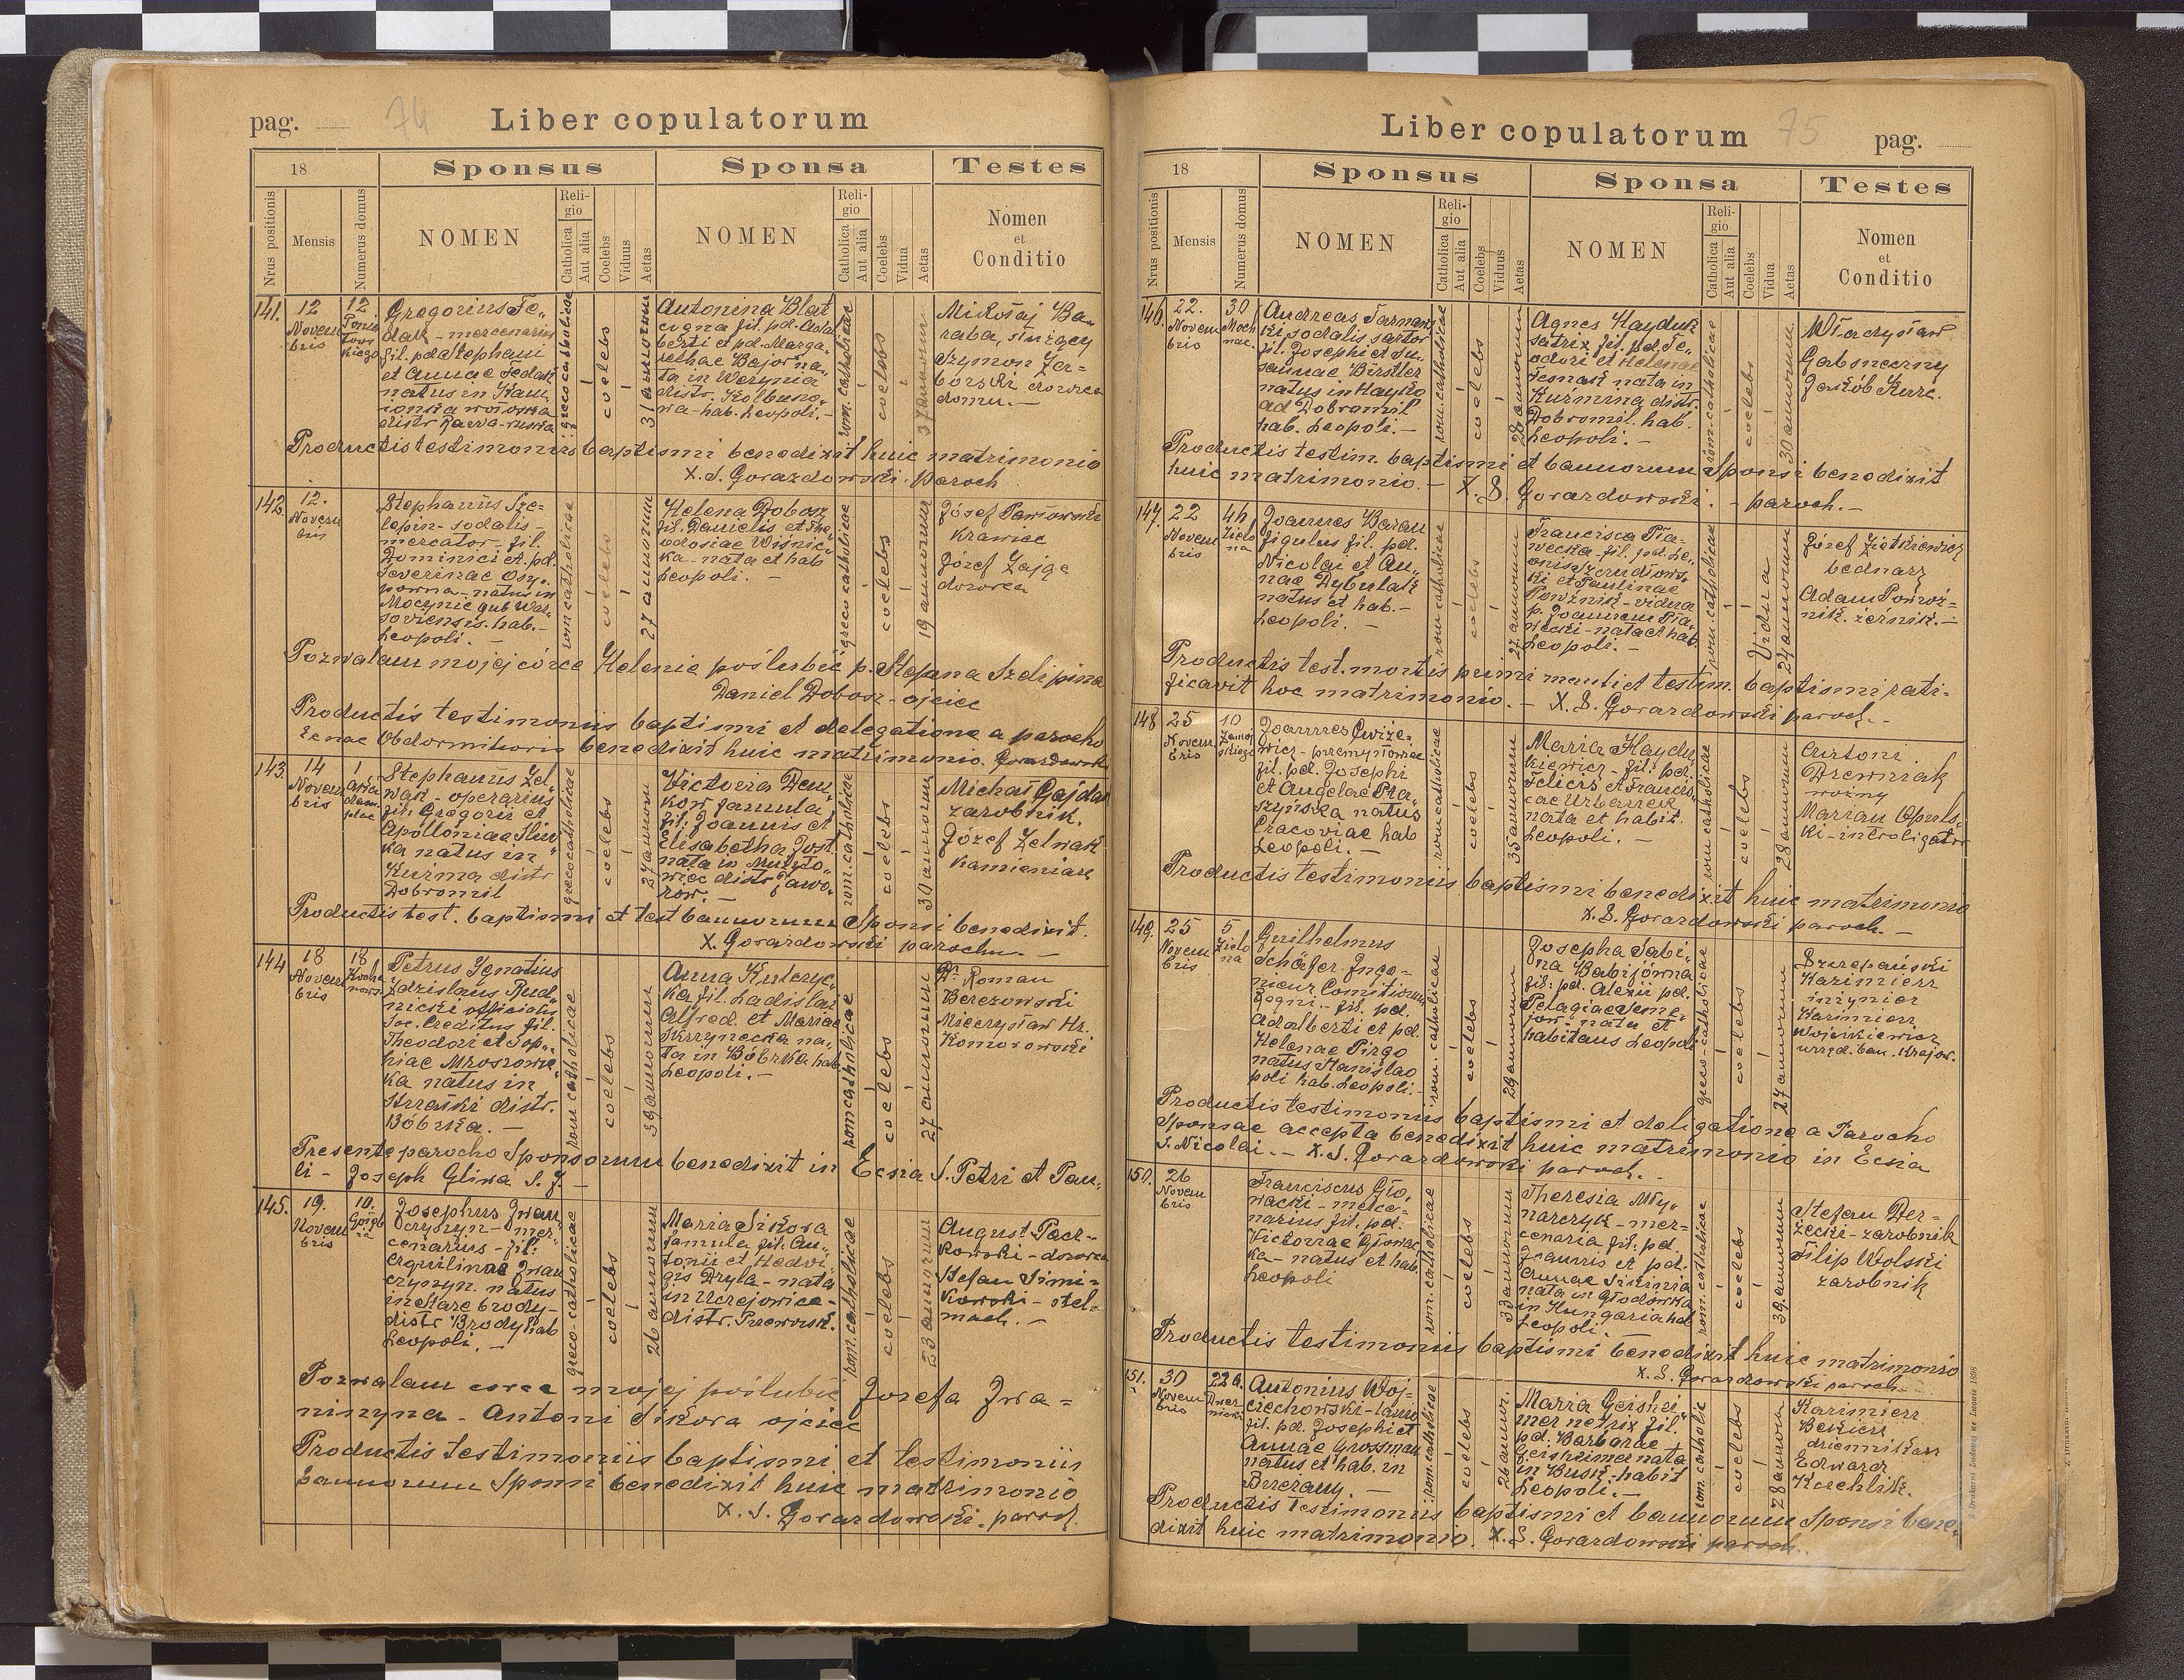 pag. 74 Liber copulatorum
18 Sponsus Sponsa Testes
Nrus positionis Mensis Numerus domus NOMEN Religio Catholica Aut alia Coelebs Viduus Aetas NOMEN Religio Catholica Aut alia Coelebs Vidua Aetas Nomen et Conditio
141. 12 Novembris 12
Gregorius Fe„
dak - mercenarius
fil. pd Stephani
et Annae Fedak
natus in Kam„
ionka wołoska
distr Rawa-ruska
greco catholicae
coelebs
31 annorum
Antonina Blat
cogna fil. pd. Adal
berti et pd. Marga„
rethae Bajor na„
ta in Werynia
distr. Kolbuszo„
wa - hab. Leopoli. -
rom. catholicae
coelebs
37 annorum
Mikołaj Ba„
raba, służący
Szymon Za=
borski dozorca
domu. -
Productis testimoniis baptismi benedixit huic matrimonio
X. S. Gorazdowski. paroch
142. 12. Novembris
Stephanus Sze„
lepin - sodalis -
mercator - fil.
Dominici et pd.
Severinae Osy„
powna - natus in
gub War„
soviensis. hab. -
Leopoli. -
rom catholicae
coelebs
27 annorum
Helena Dobosz
fil. Danielis et The„
odosiae Wiśnic„
ka - nata et hab
Leopoli. -
greco catholicae
coelebs
19 annorum
Józef Pawłowski
krawiec
Józef Zając
dozorca
Pozwalam mojej córce Helenie poślubić p. Stefana Szelipina
Daniel Dobosz - ojciec
Productis testimoniis baptismi et delegatione a parocho
Obdormitionis benedixit huic matrimonio. Gorazdowski
143. 14 Novembris 1
Stephanus Zel„
wak - operarius
fil. Gregorii et
Apolloniae Sliw„
ka natus in
Kuzma distr
Dobromil
greco catholicae
coelebs
27 annorum
Victoria Dem„
kow famula
fil. Joannis et
Elisabetha Jost.
nata in Mużyło„
wice distr Jawo„
row. -
rom. catholicae
coelebs
30 annorum
Michał Gajda
zarobnik.
Józef Zelwak
kamieniarz
Productis test. baptismi et test bannorum Sponsi benedixit.
X. Gorazdowski parochu. -
144 18 Novembris 18
Petrus Ignatius
Zdzislaus Rud„
nicki officialis
Soc. Creditus fil.
Theodori et Sop„
hiae Mrozowic„
ka natus in
distr.
Bóbrka. -
rom catholicae
coelebs
39 annorum
Anna
ka fil. Ladislai
Alfred. et Mariae
Skrzynecka na„
ta in Bóbrka hab
Leopoli. -
rom catholicae
coelebs
27 annorum
Dr. Roman
Berezowski
Mieczysław Hr.
Komorowski
Presente parocho Sponsorum benedixit in Ecsia S. Petri et Pau„
li - Joseph Gliwa S. J. -
145. 19. Novembris 10.
Josephus Iwan„
cryszyn - mer„
cenarius - fil:
Aquilinae Iwan
cryszyn. natus
in Stare brody -
distr Brody hab
Leopoli. -
greco - catholicae
coelebs
26 annorum
Maria Sikora
famula fil. An„
tonii et Hedvi„
gis Dryla - nata
in Urzejowice -
distr. Przeworsk.
rom. catholicae
coelebs
23 annorum
August Pacz-
kowski - dozorca
Stefan Simi=
kowski - stel„
mach. -
Pozwalam corce mojej poślubić Jozefa Iwa=
niszyna - Antoni Sikora ojciec
Productis testimoniis baptismi et testimonii
bannorum Sponsi benedixit huic matrimonio
X. S. Gorazdowski. paroch.
Liber copulatorum 75 pag.
18 Sponsus Sponsa Testes
Nrus positionis Mensis Numerus domus NOMEN Religio Catholica Aut alia Coelebs Viduus Aetas NOMEN Religio Catholica Aut alia Coelebs Vidua Aetas Nomen et Conditio
146. 22. Novembris 30 Mochnac.
Andreas Tarnaw
ki sodalis sartor
fil. Josephi et Su„
sannae Birstler
natus in Hayko
ad Dobromil
hab. Leopoli. -
rom. catholicae
coelebs
annorum
Agnes Hayduk
satrix fil. pd Te„
odori et Helenae
Tesnak nata in
Kuzmina distr.
Dobromil. hab.
Leopoli. -
rom. catholicae
coelebs
30 annorum
Władysław
Jakób Kurc.
Productis testim. baptismi et bannorum Sponsi benedixit
huic matrimonio. - X. S. Gorazdowski. - paroch. -
147. 22 Novembris 46 Zielona
Joannes Baran
figulus fil. pd.
Nicolai et An„
nae Dybulak
natus et hab. -
Leopoli. -
rom catholicae
coelebs
27 annorum
Francisca Pia„
secka - fil. pd. Le„
onis Szrudłows„
ki et Paulinae
Powżnik - vidua
p. Joannem Pia„
secki - nata et hab
Leopoli. -
rom. catholicae
Vidua
24 annorum
Józef Ziętkiewicz
bednarz
Adam Powroź=
nik. -
Productis test. mortis primi mariti et testim. baptismi rati=
ficavit hoc matrimonio. - X. S. Gorazdowski paroch. -
148 25 Novembris 10
Joannes Cwize=
wicz - przemysłowiec
fil. pd. Josephi
et Angelae Sta„
szyńska natus
Cracoviae hab
Leopoli. -
rom catholicae
coelebs
35 annorum
Maria Haydu„
kiewicz - fil: pd.
Felicis et Francis„
cae Urbanek
nata et habit.
Leopoli. -
rom catholicae
coelebs
28 annorum
Antoni
Drewniak
woźny
Marian Opuls„
ki - introligator
Productis testimoniis baptismi benedixit huic matrimonio
X. S. Gorazdowski paroch. -
149. 25 Novembris 5 Zielona
Guilhelmus
Schäfer. Inge=
nieur Comitiorum
Regni - fil. pd.
Adalberti et pd.
Helenae Pirgo
natus Stanislao
poli hab. Leopoli. -
rom. catholicae
coelebs
29 annorum
Josepha Sabi„
na Babijówna
fil: pd. Alexii pd.
Pelagiae Seme„
jow - nata et
habitans Leopoli
greco - catholicae
coelebs
27 annorum
Szczepański
Kazimierz
inżynier
Kazimierz
Wojcikiewicz
urzęd. ban. krajow.
Productis testimoniis baptismi et deligatione a Parocho
Sponsae accepta benedixit huic matrimonio in Ecsia
S. Nicolai. - X. S. Gorazdowski paroch. -
150. 26 Novembris
Franciscus Gło„
wacki - merce„
narius fil. pd.
Victoriae Głowac„
ka - natus et hab.
Leopoli
rom. catholicae
coelebs
33 annorum
Theresia Mły„
narczyk - mer=
cenaria fil: pd.
Joannis et pd.
Annae Sikinia
nata in Głodówka
in Hungaria hab
Leopoli. -
rom. catholicae
coelebs
39 annorum
Stefan Der=
zecki - zarobnik
Filip Wolski
zarobnik
Productis testimonii baptismi benedixit huic matrimonio
X. S. Gorazdowski paroch. -
151. 30 Novembris 22 a.
Antonius Woj=
ciechowski -
fil. pd. Josephi et
Annae Grossman
natus et hab. in
Brzezany. -
rom. catholicae
coelebs
26 annor.
Maria Geishei„
mer netrix fil.
pd. Barbarae
Geisheimer nata
in Busk - habit
Leopoli. -
rom. catholic
coelebs
28 annorum
Kazimierz
Bekierz
dziennikarz
Edward
Kuchlik.
Productis testimoniis baptismi et bannorum Sponsi bene„
dixit huic matrimonio. X. S. Gorazdowski paroch.